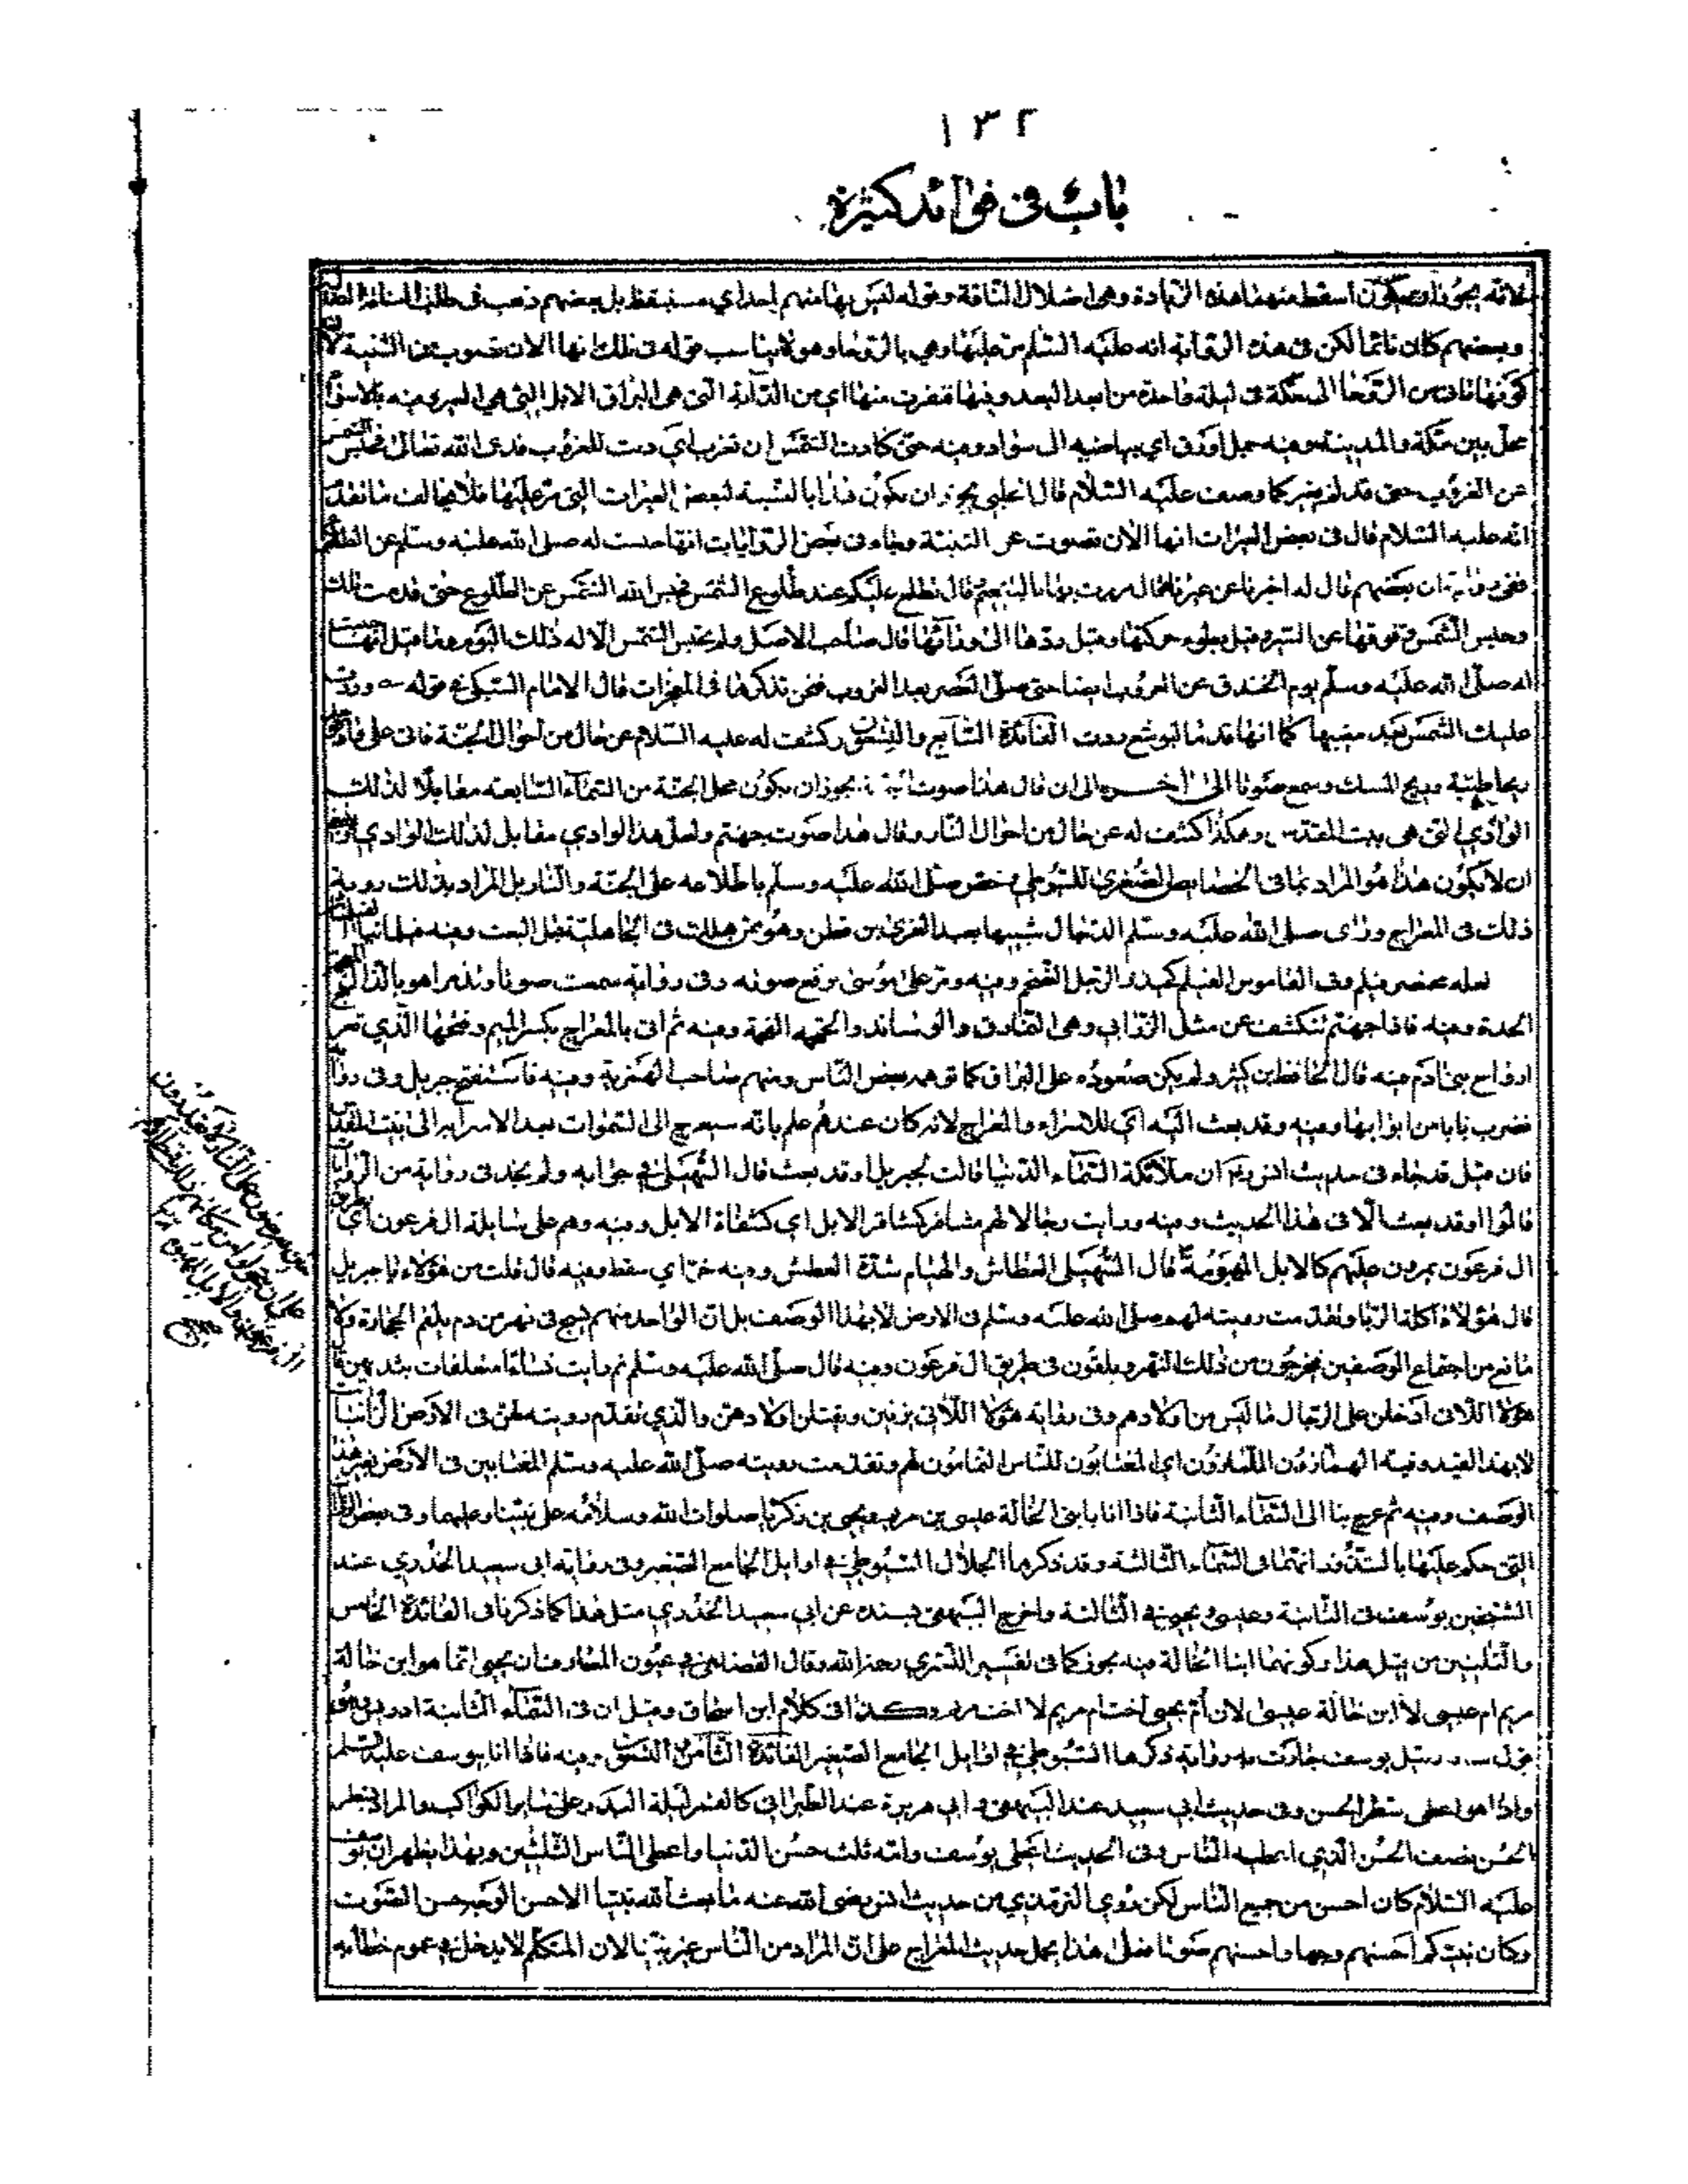 ١٣٢
باب في فوائد كثيرة
لانه يجوز ان يكون اسقط منهما هذه الزيادة وهي اضلال الناقة وقوله ليس بها منهم احد اي مستيقظ بل بعضهم ذهب في طلب الناقة
وبعضهم كان نائما لكن في هذه الرواية انه عليه السلام مر عليها وهي بالروحا وهو لا يناسب قوله في تلك انها الان تصوب من الثنية
كونها تأتي من الروحا الى مكة في ليلة واحدة من ابعد البعد وفيها فنفرت منها اي من الدابة التي هي البراق الابل التي هي العير ومنه بلاستوا
محل بين مكة والمدينة ومنه جمل اورق اي بياضه الى سواد ومنه حتى كادت الشمس ان تغرب اي دنت للغروب فدعى الله تعالى فحبس الشمس
عن الغروب حتى قدم العير كما وصف عليه السلام قال الحلبي يجوز ان يكون هذا بالنسبة لبعض العيرات التي مر عليها فلا يخالف ما تقدم
انه عليه السلام قال في بعض العيرات انها الان تصوب من الثنية وجاء في بعض الروايات انها حبست له صلى الله عليه وسلم عن الطلوع
ففي رواية ان بعضهم قال له اخبرنا عن عيرنا قال مررت بها بالتنعيم قال تطلع عليكم عند طلوع الشمس فحبس الله الشمس عن الطلوع حتى قدمت تلك
وحبس الشمس وقوفها عن السير وقيل بطوء حركتها وقيل ردها الى ورائها قال صاحب الاصل ولم يحتبس الشمس الا له ذلك اليوم وما قيل انها حبست
له صلى الله عليه وسلم يوم الخندق عن الغروب ايضا حتى صلى العصر بعد الغروب فنحن نذكرها في المعجزات قال الامام السبكي في قوله وردت
عليك الشمس بعد مغيبها كما انها قدما ليوشع ردت الفائدة السابع والتسعون وكشف له عليه السلام عن حال من احوال الجنة فاتى على واد
ريحا طيبة وريح المسك وسمع صوتا الى اخره الى ان قال هذا صوت الجنة يجوز ان يكون محل الجنة من السماء السابعة مقابلا لذلك
الوادي التي هي بيت المقدس وهكذا كشف له عن حال من احوال النار وقال هذا صوت جهنم ولعل هذا الوادي مقابل لذلك الوادي
ان لا يكون هذا هو المراد بما في الخصايص الصغرى للسيوطي وخص صلى الله عليه وسلم باطلاعه على الجنة والنار بل المراد بذلك روية
ذلك في المعراج ورأى صلى الله عليه وسلم الدجال شبيها بعبد العزى بن قطن وهو ممن هلك في الجاهلية قبل البعث ومنه فيلمانيا
لعله محضر فيلم وفي القاموس الفيلم كحيدر الرجل الضخم ومنه ومر على موسى يرفع صوته وفي رواية سمعت صوتا وتذمرا هو بالذال المعجمة
الحدة ومنه فاذا جهنم تنكشف عن مثل الزرابي وهي النمارق والوسائد والحميم الفحمة ومنه ثم اتى بالمعراج بكسر الميم وفتحها الذي تعرج
ارواح بني آدم منه قال الحافظ ابن كثير ولم يكن صعوده على البراق كما توهمه بعض الناس ومنهم صاحب الهمزية ومنه فاستفتح جبريل وفي رواية
فضرب بابا من ابوابها ومنه وقد بعث اليه اي للاسراء والمعراج لانه كان عندهم علم بانه سيعرج الى السموات بعد الاسراء الى بيت المقدس
فان قيل قد جاء في حديث انس رض ان ملائكة السماء الدنيا قالت لجبريل اوقد بعث قال السهيلي في جوابه ولم يجد في رواية من الروايات
قالوا اوقد بعث الا في هذا الحديث ومنه ورايت رجالا لهم مشافر كمشافر الابل اي كشفاة الابل ومنه وهم على سابلة ال فرعون اي
ال فرعون يمرون عليهم كالابل المهيومة قال السهيلي العطاش والهيام شدة العطش ومنه خر اي سقط ومنه قال قلت من هؤلاء يا جبريل
قال هؤلاء اكلة الربا وتقدمت رويته لهم صلى الله عليه وسلم في الارض لا بهذا الوصف بل ان الواحد منهم يسبح في نهر من دم يلقم الحجارة ولا
مانع من اجتماع الوصفين فيخرجون من ذلك النهر ويلقون في طريق ال فرعون ومنه قال صلى الله عليه وسلم ثم رايت نساء معلقات بثديهن
هؤلاء اللاتي ادخلن على الرجال ما ليس من اولادهم وفي رواية هؤلاء اللاتي يزنين ويقتلن اولادهن والذي تقدم رويته لهن في الارض الزانيات
لا بهذا القيد وفيه الهمازون اللمازون اي المغتابون للناس النمامون لهم وتقدمت رويته صلى الله عليه وسلم المغتابين في الارض بغير هذا
الوصف ومنه ثم عرج بنا الى السماء الثانية فاذا انا بابني الخالة عيسى بن مريم ويحيى بن زكريا صلوات الله وسلامه على نبينا وعليهما وفي بعض الروايات
التي حكم عليها بالشذوذ انهما في السماء الثالثة وقد ذكرها الجلال السيوطي في اوايل الجامع الصغير وفي رواية ابي سعيد الخدري عند
الشيخين يوسف في الثانية وعيسى ويحيى في الثالثة واخرج البيهقي بسنده عن ابي سعيد الخدري مثل هذا كما ذكرنا في الفائدة الخامس
والثلثين من قبل هذا وكونهما ابنا الخالة فيه يجوز كما في تفسير التستري رحمه الله وقال القضاعي في عيون المعارف ان يحيى انما هو ابن خالة
مريم ام عيسى لا ابن خالة عيسى لان ام يحيى اخت ام مريم لا اخت مريم وكذا في كلام ابن اسحاق وقيل ان في السماء الثانية ادريس وهو
قول وقيل يوسف جاءت به رواية ذكرها السيوطي في اوايل الجامع الصغير الفائدة الثامن والتسعون ومنه فاذا انا بيوسف عليه السلم
واذا هو اعطى شطر الحسن وفي حديث ابي سعيد عند البيهقي وابي هريرة عند الطبراني كالقمر ليلة البدر على ساير الكواكب والمراد بشطر
الحسن نصف الحسن الذي اعطيه الناس وفي الحديث اعطي يوسف وامه ثلث حسن الدنيا واعطي الناس الثلثين وبهذا يظهر ان يوسف
عليه السلام كان احسن من جميع الناس لكن روي الترمذي من حديث انس رضي الله عنه ما بعث الله نبيا الا حسن الوجه حسن الصوت
وكان نبيكم احسنهم وجها واحسنهم صوتا فعلى هذا يحمل حديث المعراج على ان المراد من الناس غير نبينا لان المتكلم لا يدخل في عموم خطابه